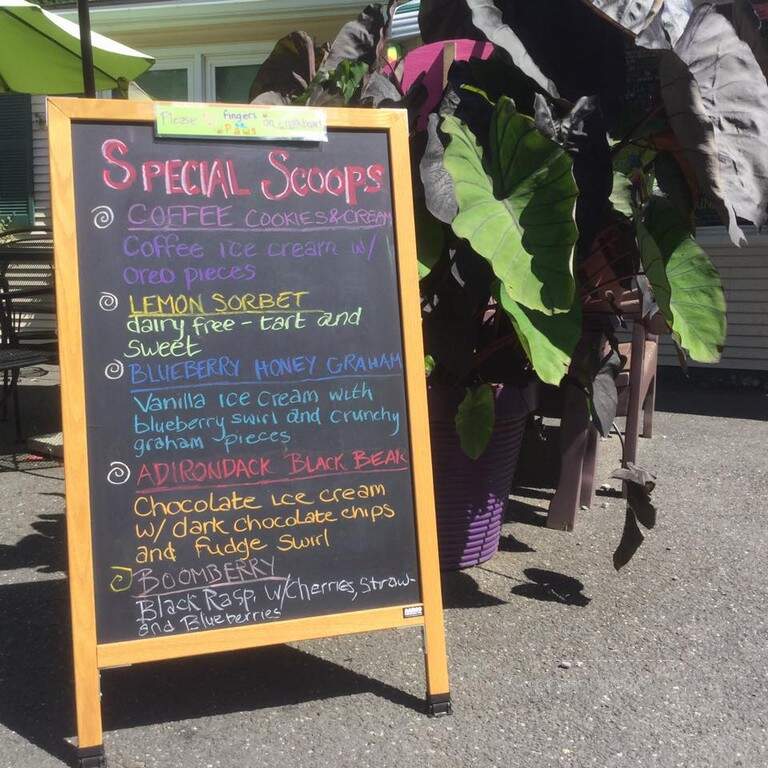 Please fingers
Paws on chalkboard
SPECIAL SCOOPS
COFFEE COOKIES & CREAM
Coffee ice cream w/
oreo pieces
LEMON SORBET
dairy free - tart and
sweet
BLUEBERRY HONEY GRAHAM
Vanilla ice cream with
blueberry swirl and crunchy
graham pieces
ADIRONDACK BLACK BEAR
Chocolate ice cream
w/ dark chocolate chips
and fudge swirl
BOOMBERRY
Black Rasp. w/Cherries, Straw-
and Blueberries